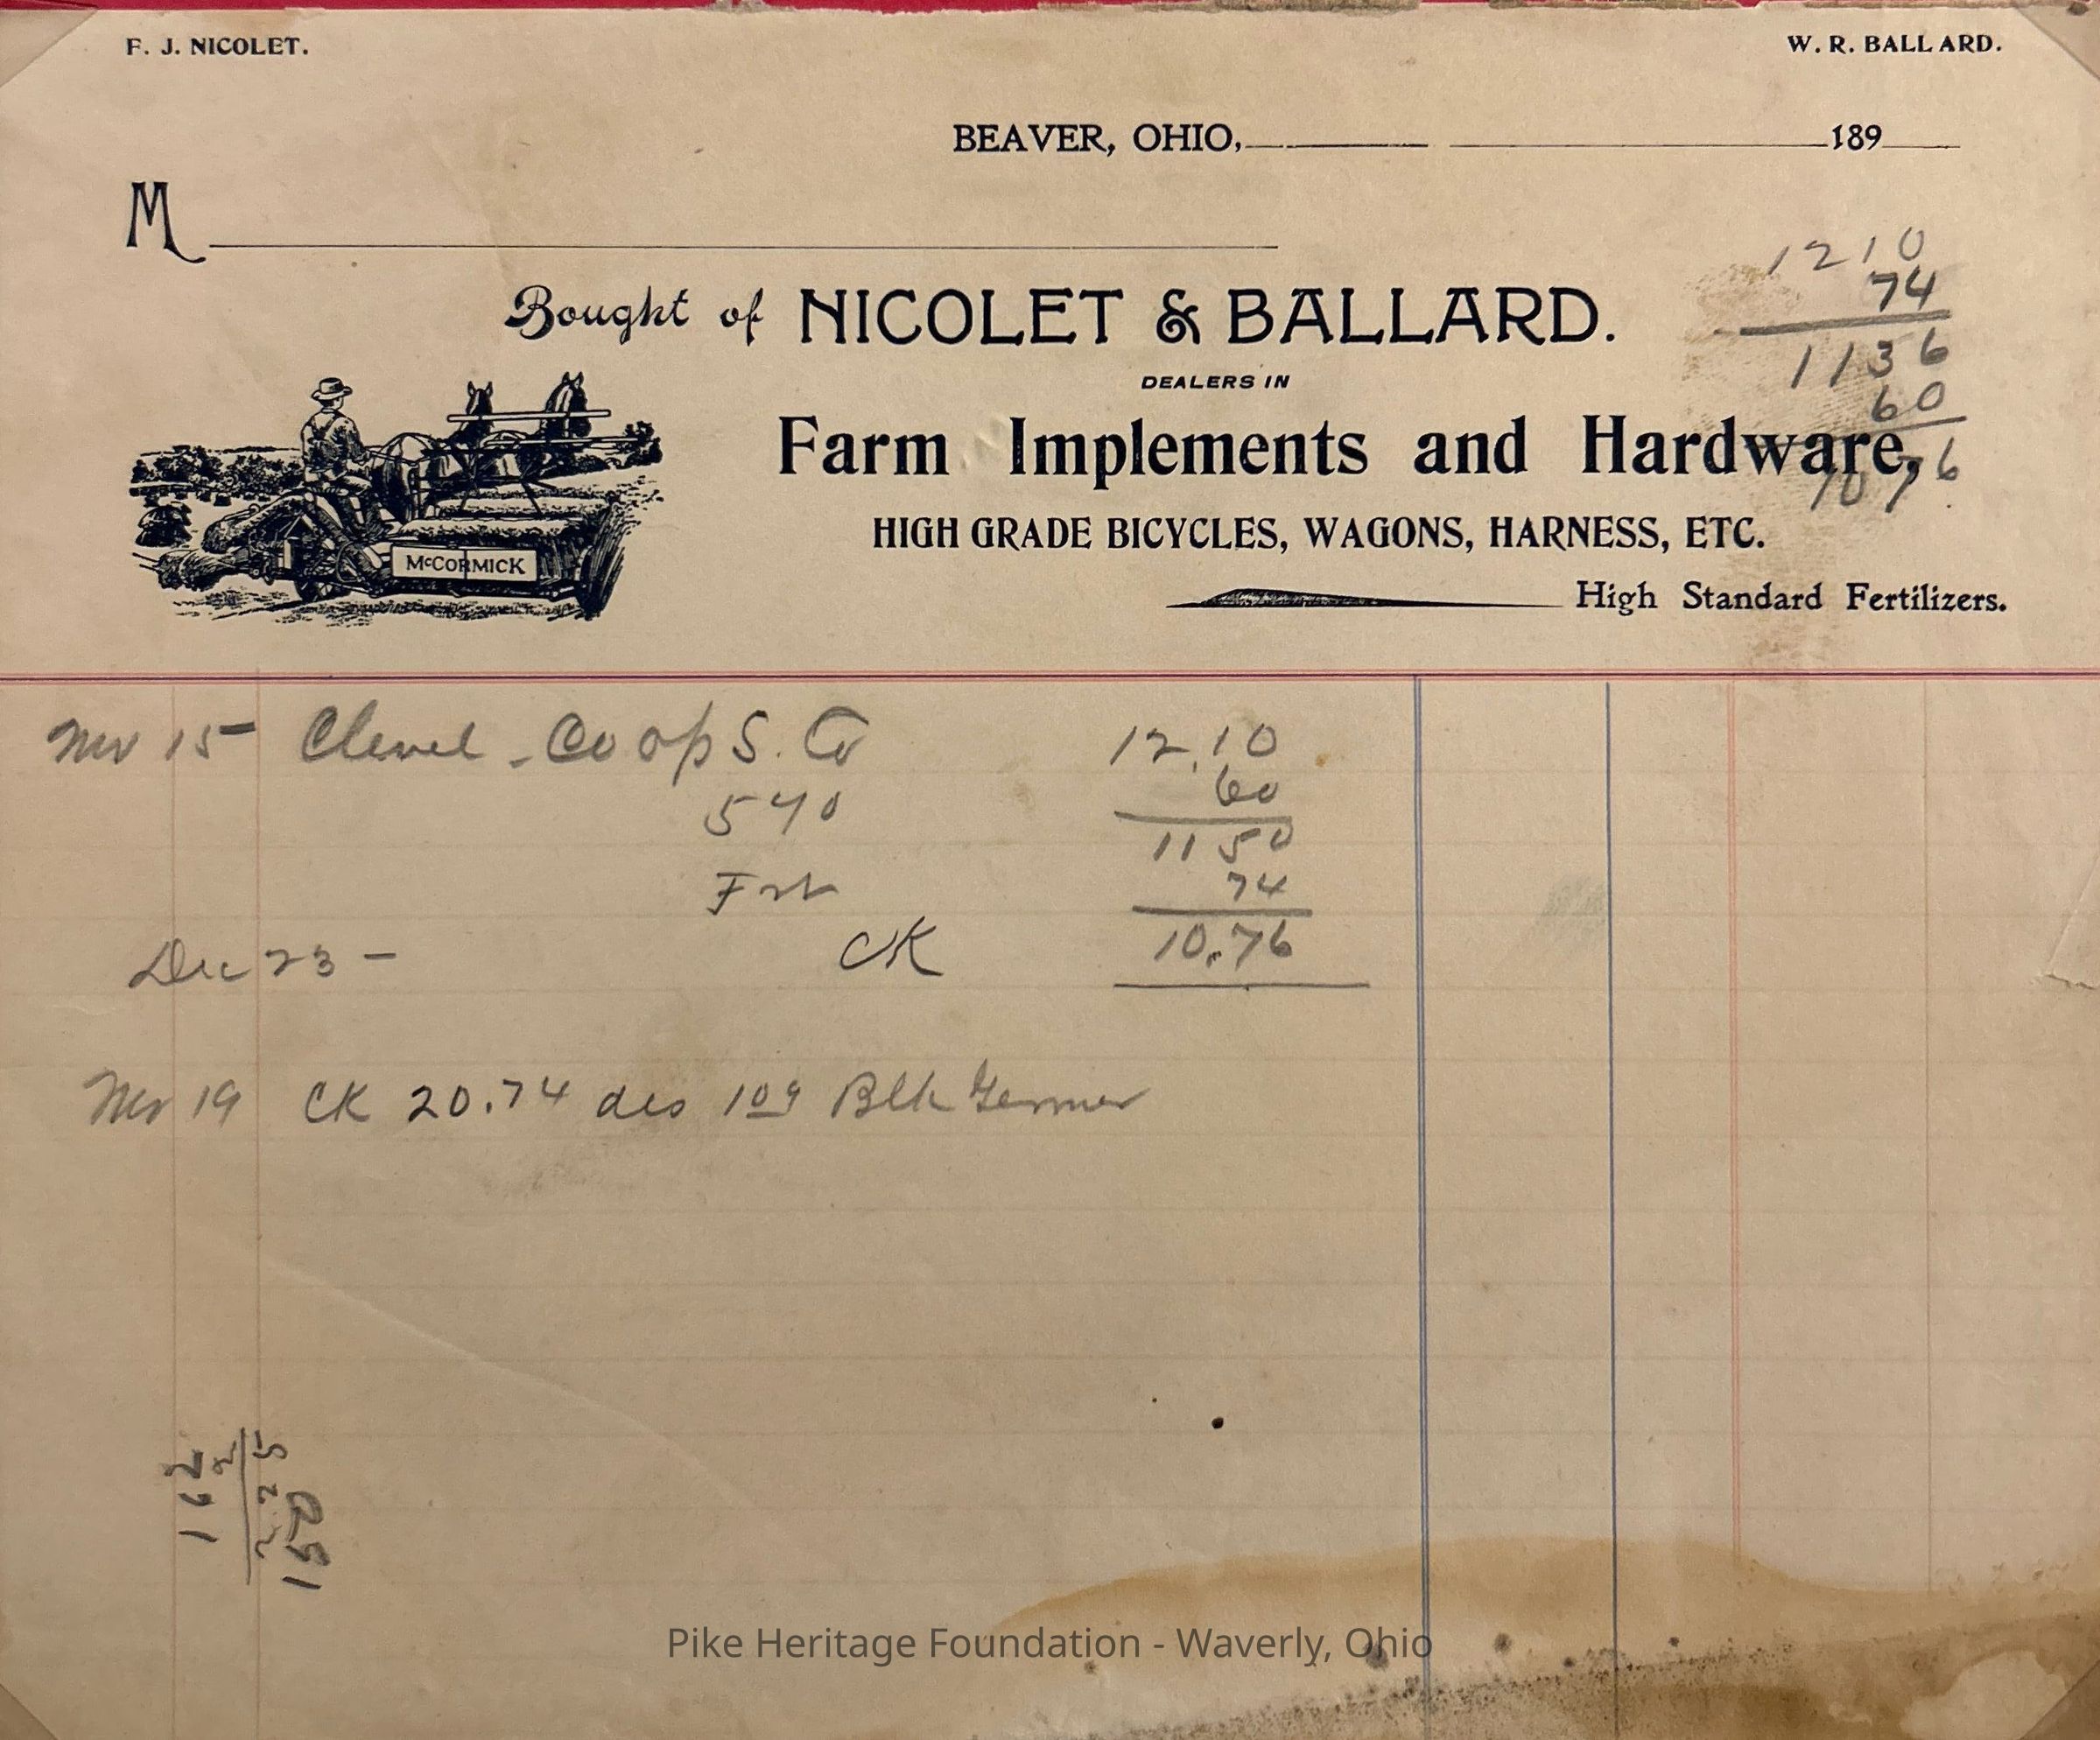 F. J. NICOLET.
W. R. BALLARD.
BEAVER, OHIO, 189
M
Bought of NICOLET & BALLARD.
DEALERS IN
Farm Implements and Hardware,
HIGH GRADE BICYCLES, WAGONS, HARNESS, ETC.
High Standard Fertilizers.
McCORMICK
1210
74
1136
60
1076
Nov 15 - Clevel - Co op S. Co 12.10
60
540
1150
Frt 74
Dec 23 - CK 10.76
Nov 19 CK 20.74 des 109 Blk
162
2
225
150
Pike Heritage Foundation - Waverly, Ohio